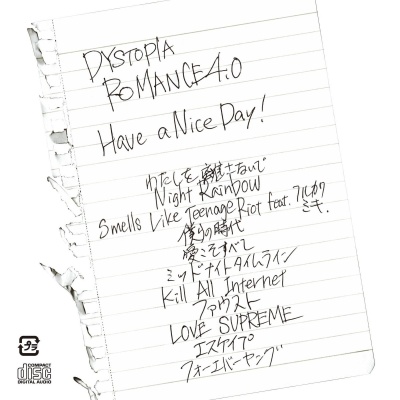 DYSTOPIA
ROMANCE 4.0
Have a Nice Day!
わたしを離さないで
Night Rainbow
Smells Like Teenage Riot feat. フルカワ
ミキ.
僕らの時代
愛こそすべて
ミッドナイトタイムライン
Kill All Internet
ファウスト
LOVE SUPREME
エスケイプ
フォーエバーヤング
プラ
COMPACT
disc
DIGITAL AUDIO